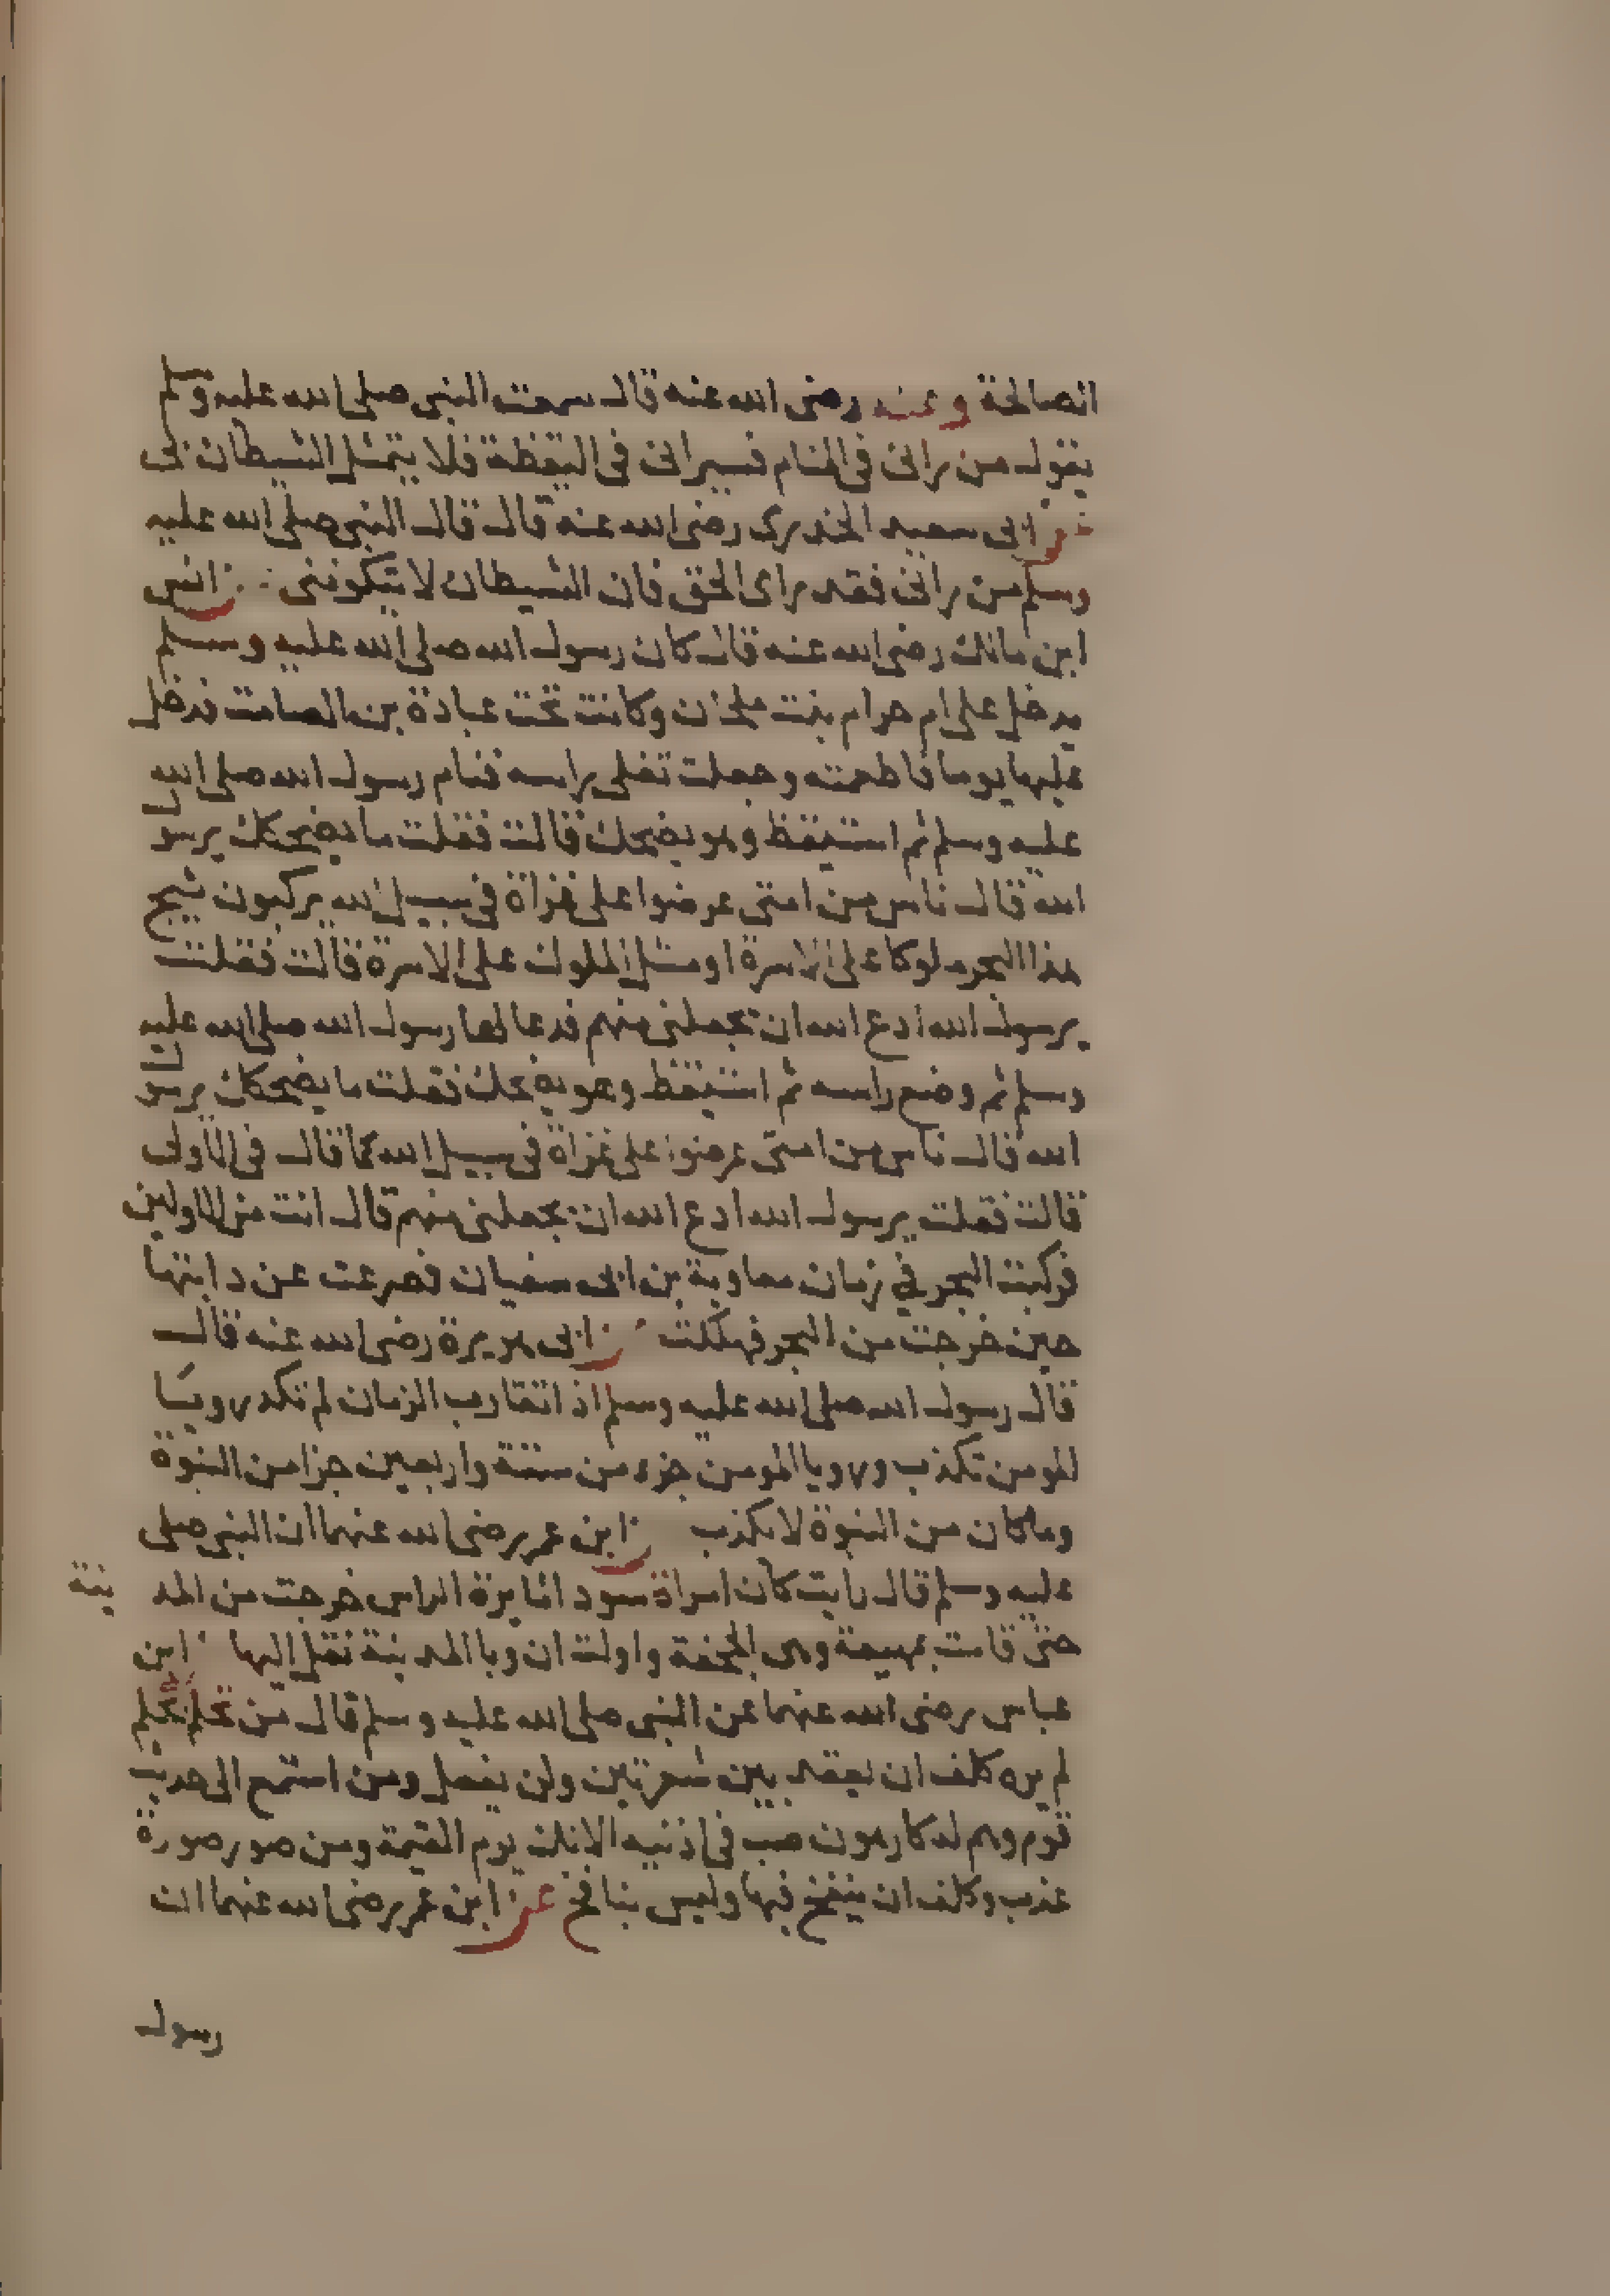 الصالحة وعنه رضى الله عنه قال سمعت النبى صلى الله عليه وسلم
يقول من رانى فى المنام فسيرانى فى اليقظة فلا يتمثل الشيطان بى
عن ابى سعيد الخدرى رضى الله عنه قال قال النبى صلى الله عليه
وسلم من رانى فقد راى الحق فان الشيطان لا يتكوننى عن انس
ابن مالك رضى الله عنه قال كان رسول الله صلى الله عليه وسلم
يدخل على ام حرام بنت ملحان وكانت تحت عبادة بن الصامت فدخل
عليها يوما فاطعمته وجعلت تفلى راسه فنام رسول الله صلى الله
عليه وسلم ثم استيقظ وهو يضحك قالت فقلت ما يضحكك يرسول
الله قال ناس من امتى عرضوا على غزاة فى سبيل الله يركبون ثبج
هذا البحر ملوكا على الاسرة او مثل الملوك على الاسرة قالت فقلت
يرسول الله ادع الله ان يجعلنى منهم فدعا لها رسول الله صلى الله عليه
وسلم ثم وضع راسه ثم استيقظ وهو يضحك فقلت ما يضحكك يرسول
الله قال ناس من امتى عرضوا على غزاة فى سبيل الله كما قال فى الاولى
قالت فقلت يرسول الله ادع الله ان يجعلنى منهم قال انت من الاولين
فركبت البحر في زمان معاوية بن ابى سفيان فصرعت عن دابتها
حين خرجت من البحر فهلكت عن ابى هريرة رضى الله عنه قال
قال رسول الله صلى الله عليه وسلم اذ اتقارب الزمان لم تكد رويا
المومن تكذب ورويا المومن جزء من ستة واربعين جزا من النبوة
وما كان من النبوة لا يكذب عن ابن عمر رضى الله عنهما ان النبى صلى
عليه وسلم قال رايت كان امراة سودا ثايرة الراس خرجت من المد
ينة
حتى قامت بمهيعة وهى الجحفة واولت ان وبا المدينة نقل اليها ابن
عباس رضى الله عنهما عن النبى صلى الله عليه وسلم قال من تحلم بحلم
لم يره كلف ان يعقد بين شعرتين ولن يفعل ومن استمع الى حديث
قوم وهم له كارهون صب فى اذنيه الانك يوم القيمة ومن صور صورة
عذب وكلف ان ينفخ فيها وليس بنافخ عن ابن عمر رضى الله عنهما ان
رسول